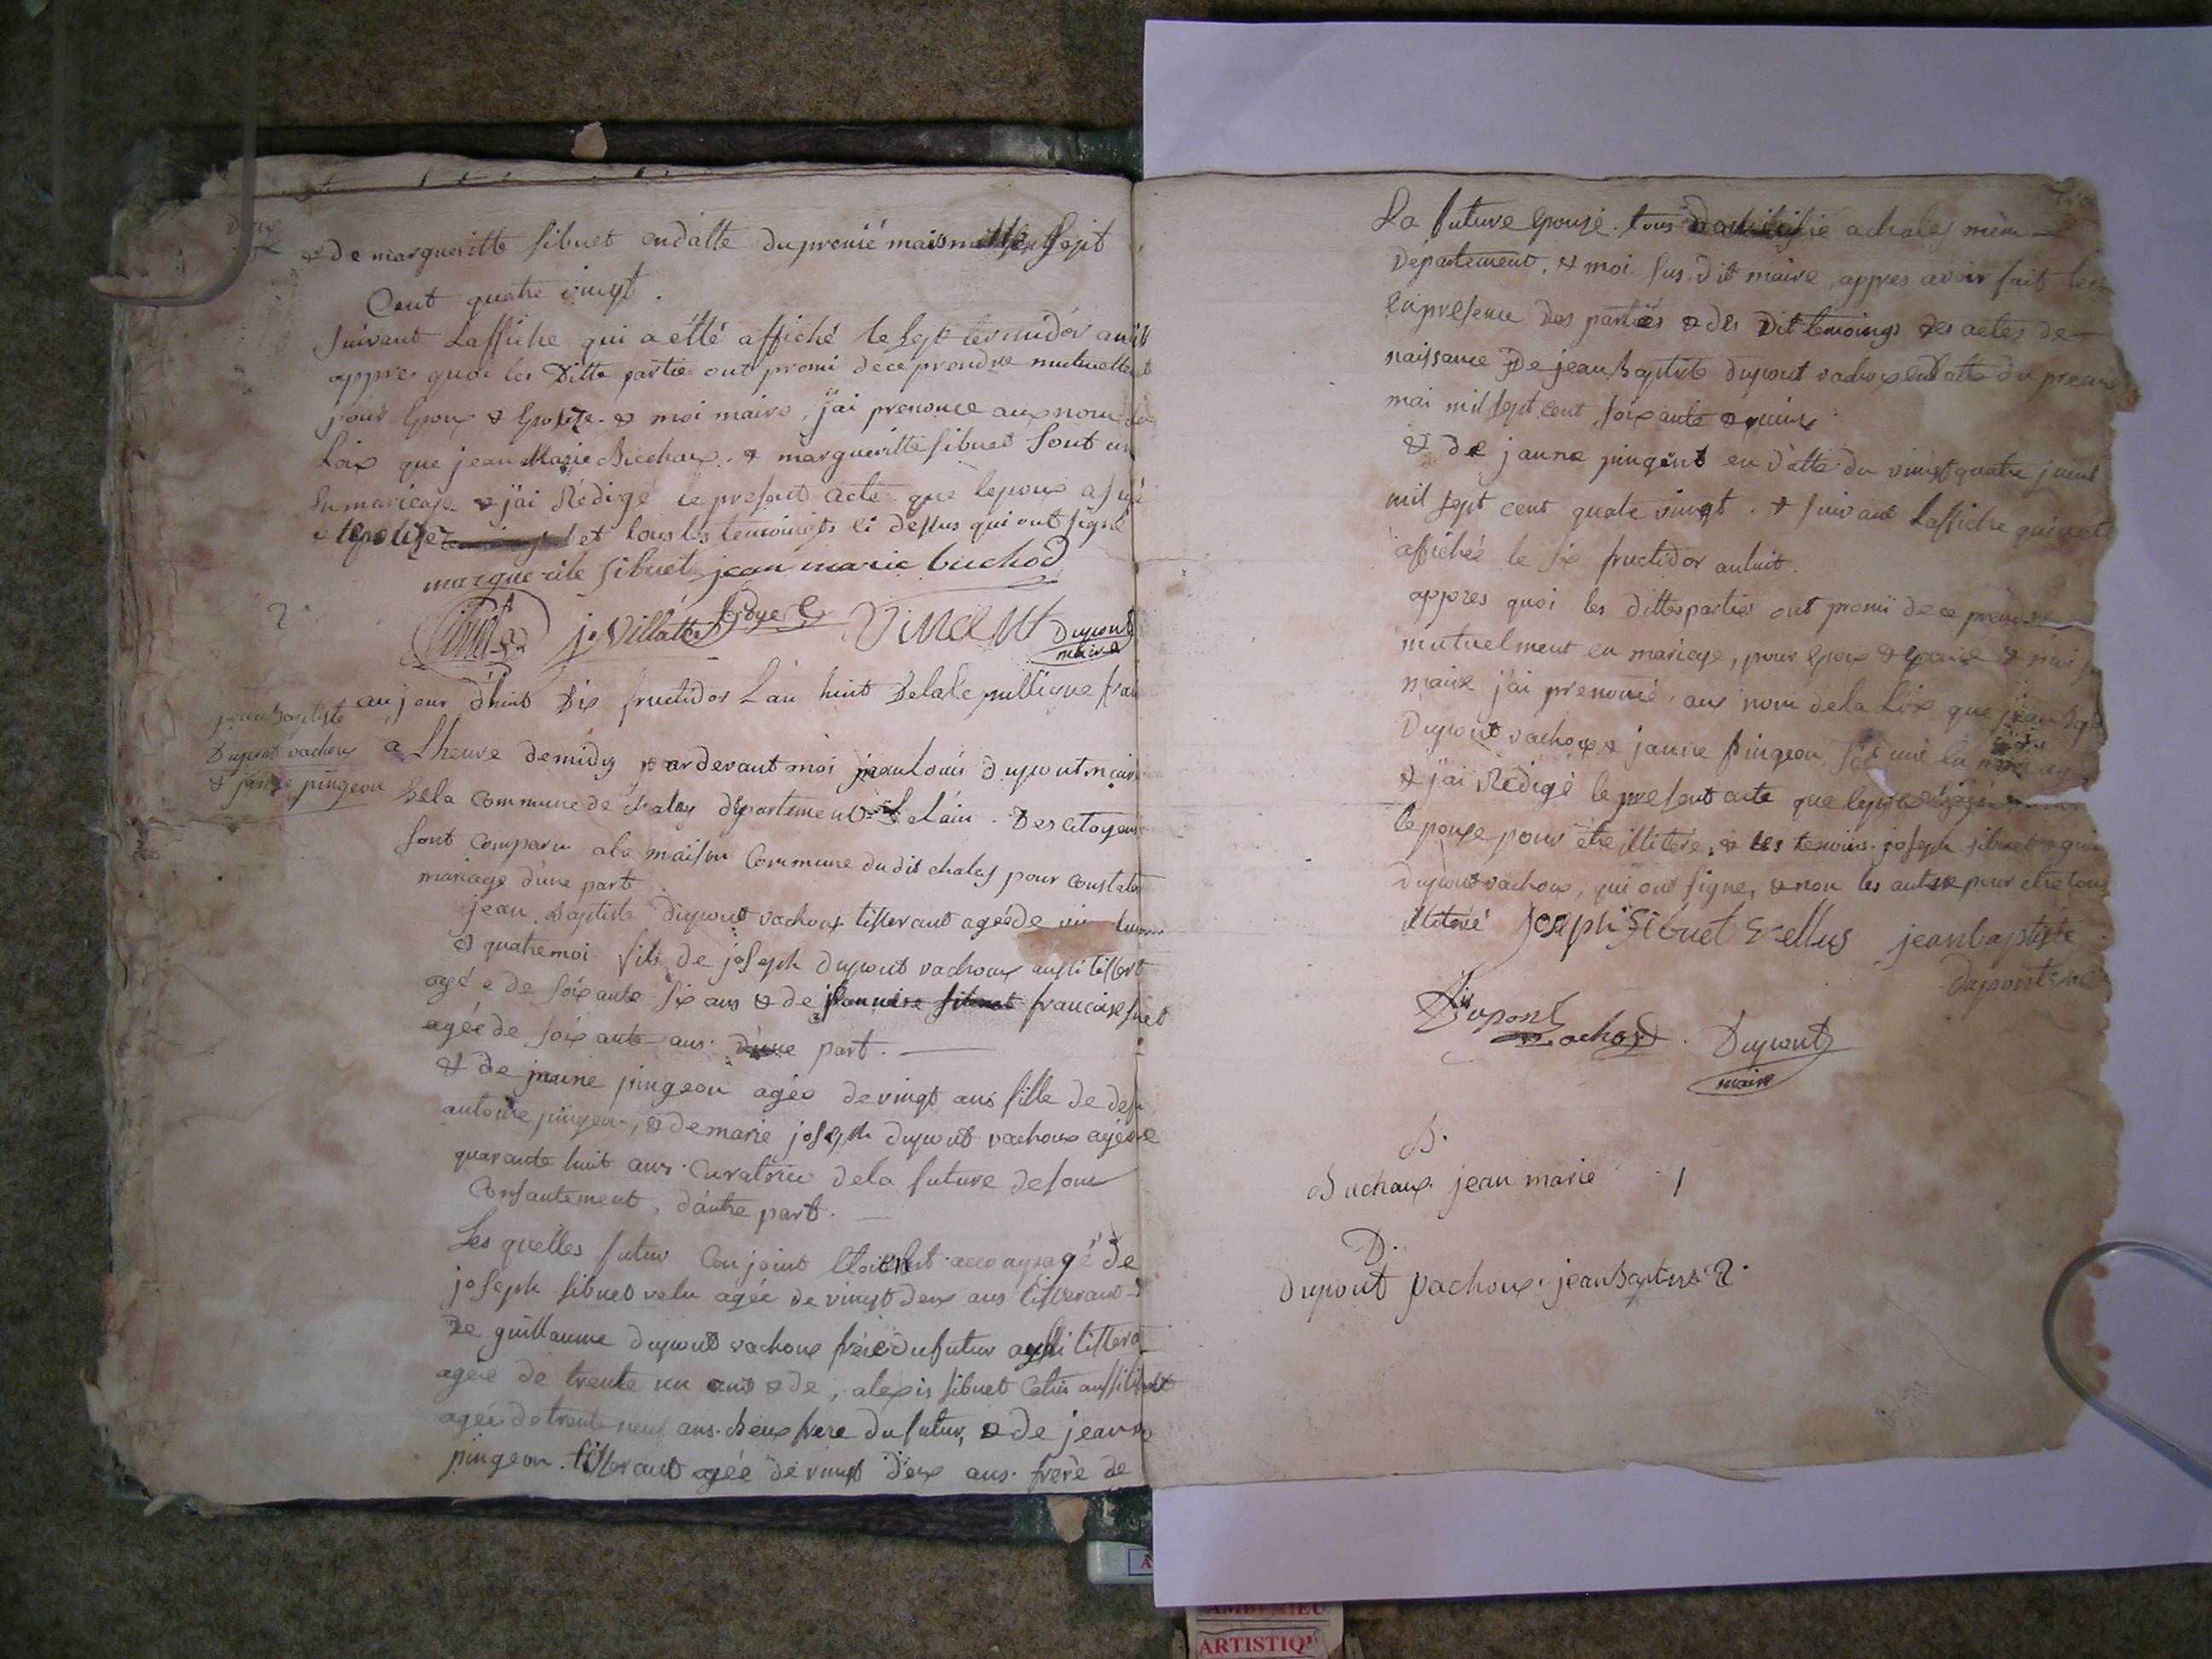 & De margueritte sibuet en datte du premié mais mil sept
Cent quatre vingt.
suivant Laffiche qui a étté affiché le sept termidor an 8
appre quoi les Ditte partie ont promi de ce prendre mutuellement
pour Epoux & Epouze. & moi maire, j'ai prenonce aux nom de
Loix que jean Marie Buchoux. & margueritte sibuet sont uni
En mariage & j'ai Rédigé le presant acte que lepoux a signé
et tous les temoingts ci dessus qui ont signé
marguerite sibuet jean marie buchod
j. Villatte Goyet Vincent Dupont
maire
2
jean Baptiste
Dupont vachoux
& janne pingeon
aujour d'huit Dix fructidor L'an huit Dela Republique fran
a Lheure demidy pardevant moi jean louis dupont maire
Dela Commune de chaley département De Lain. Des Citoyens
sont Comparu ala maison Commune dudit chaley pour Constater
mariage d'une part
jean Baptiste Dupont vachoux tisserant agée de
& quatre moi fils de joseph Dupont vachoux aussi tissert
agée de soixante six ans & de francoise
agée de soixante ans. d'une part.
& De janne pingeon agée de vingt ans fille de defu
antoine pingeon, & de marie joseph dupont vachoux agée de
quarante huit ans. Curatrice dela future de son
Consantement, d'autre part.
Les quelles futur Conjoint accompagé De
joseph sibuet velu agée de vingt deux ans tisserant
De guillaume dupont vachoux frère du futur aussi tissera
agée de trente un ans & de, alexis sibuet aussi
agée de trente neuf ans. Beux frere du futur, & de jean
pingeon. tisserant agée de vingt deux ans. frere de
La future Epouse. tous a chaley mème
Département. & moi sus. dit maire, appres avoir fait lect
en presence des parties & des Dit temoings des actes de
naissance De jean Baptiste dupont vachoux en datte du premie
mai mil sept cent soixante & quinze
& De janne pingeont en datte du vingt quatre juin
mil sept cent quatre vingt. & suivant Laffiche qui a été
affichée le six fructidor an huit.
appres quoi les dittes parties ont promi de ce prendre
mutuelment en mariage, pour Epoux & Epouse & moi
maire j'ai prenoncé, aux nom dela Loix que jean Bapt
Dupont vachoux & janne pingeon
& j'ai Rédigé le present acte que lepoux
lepouse pour être illitéré, & les temoins joseph sibuet & guil
Dupont vachoux, qui ont signé, & non les autre pour etre tous
illitéré joseph Sibuet Vellus jean baptiste
Dupont
Dupont
Vachod. Dupont
maire
B.
Buchoux jean marie 1
D.
Dupont Vachoux. jean Baptiste 2.
ARTISTIQ